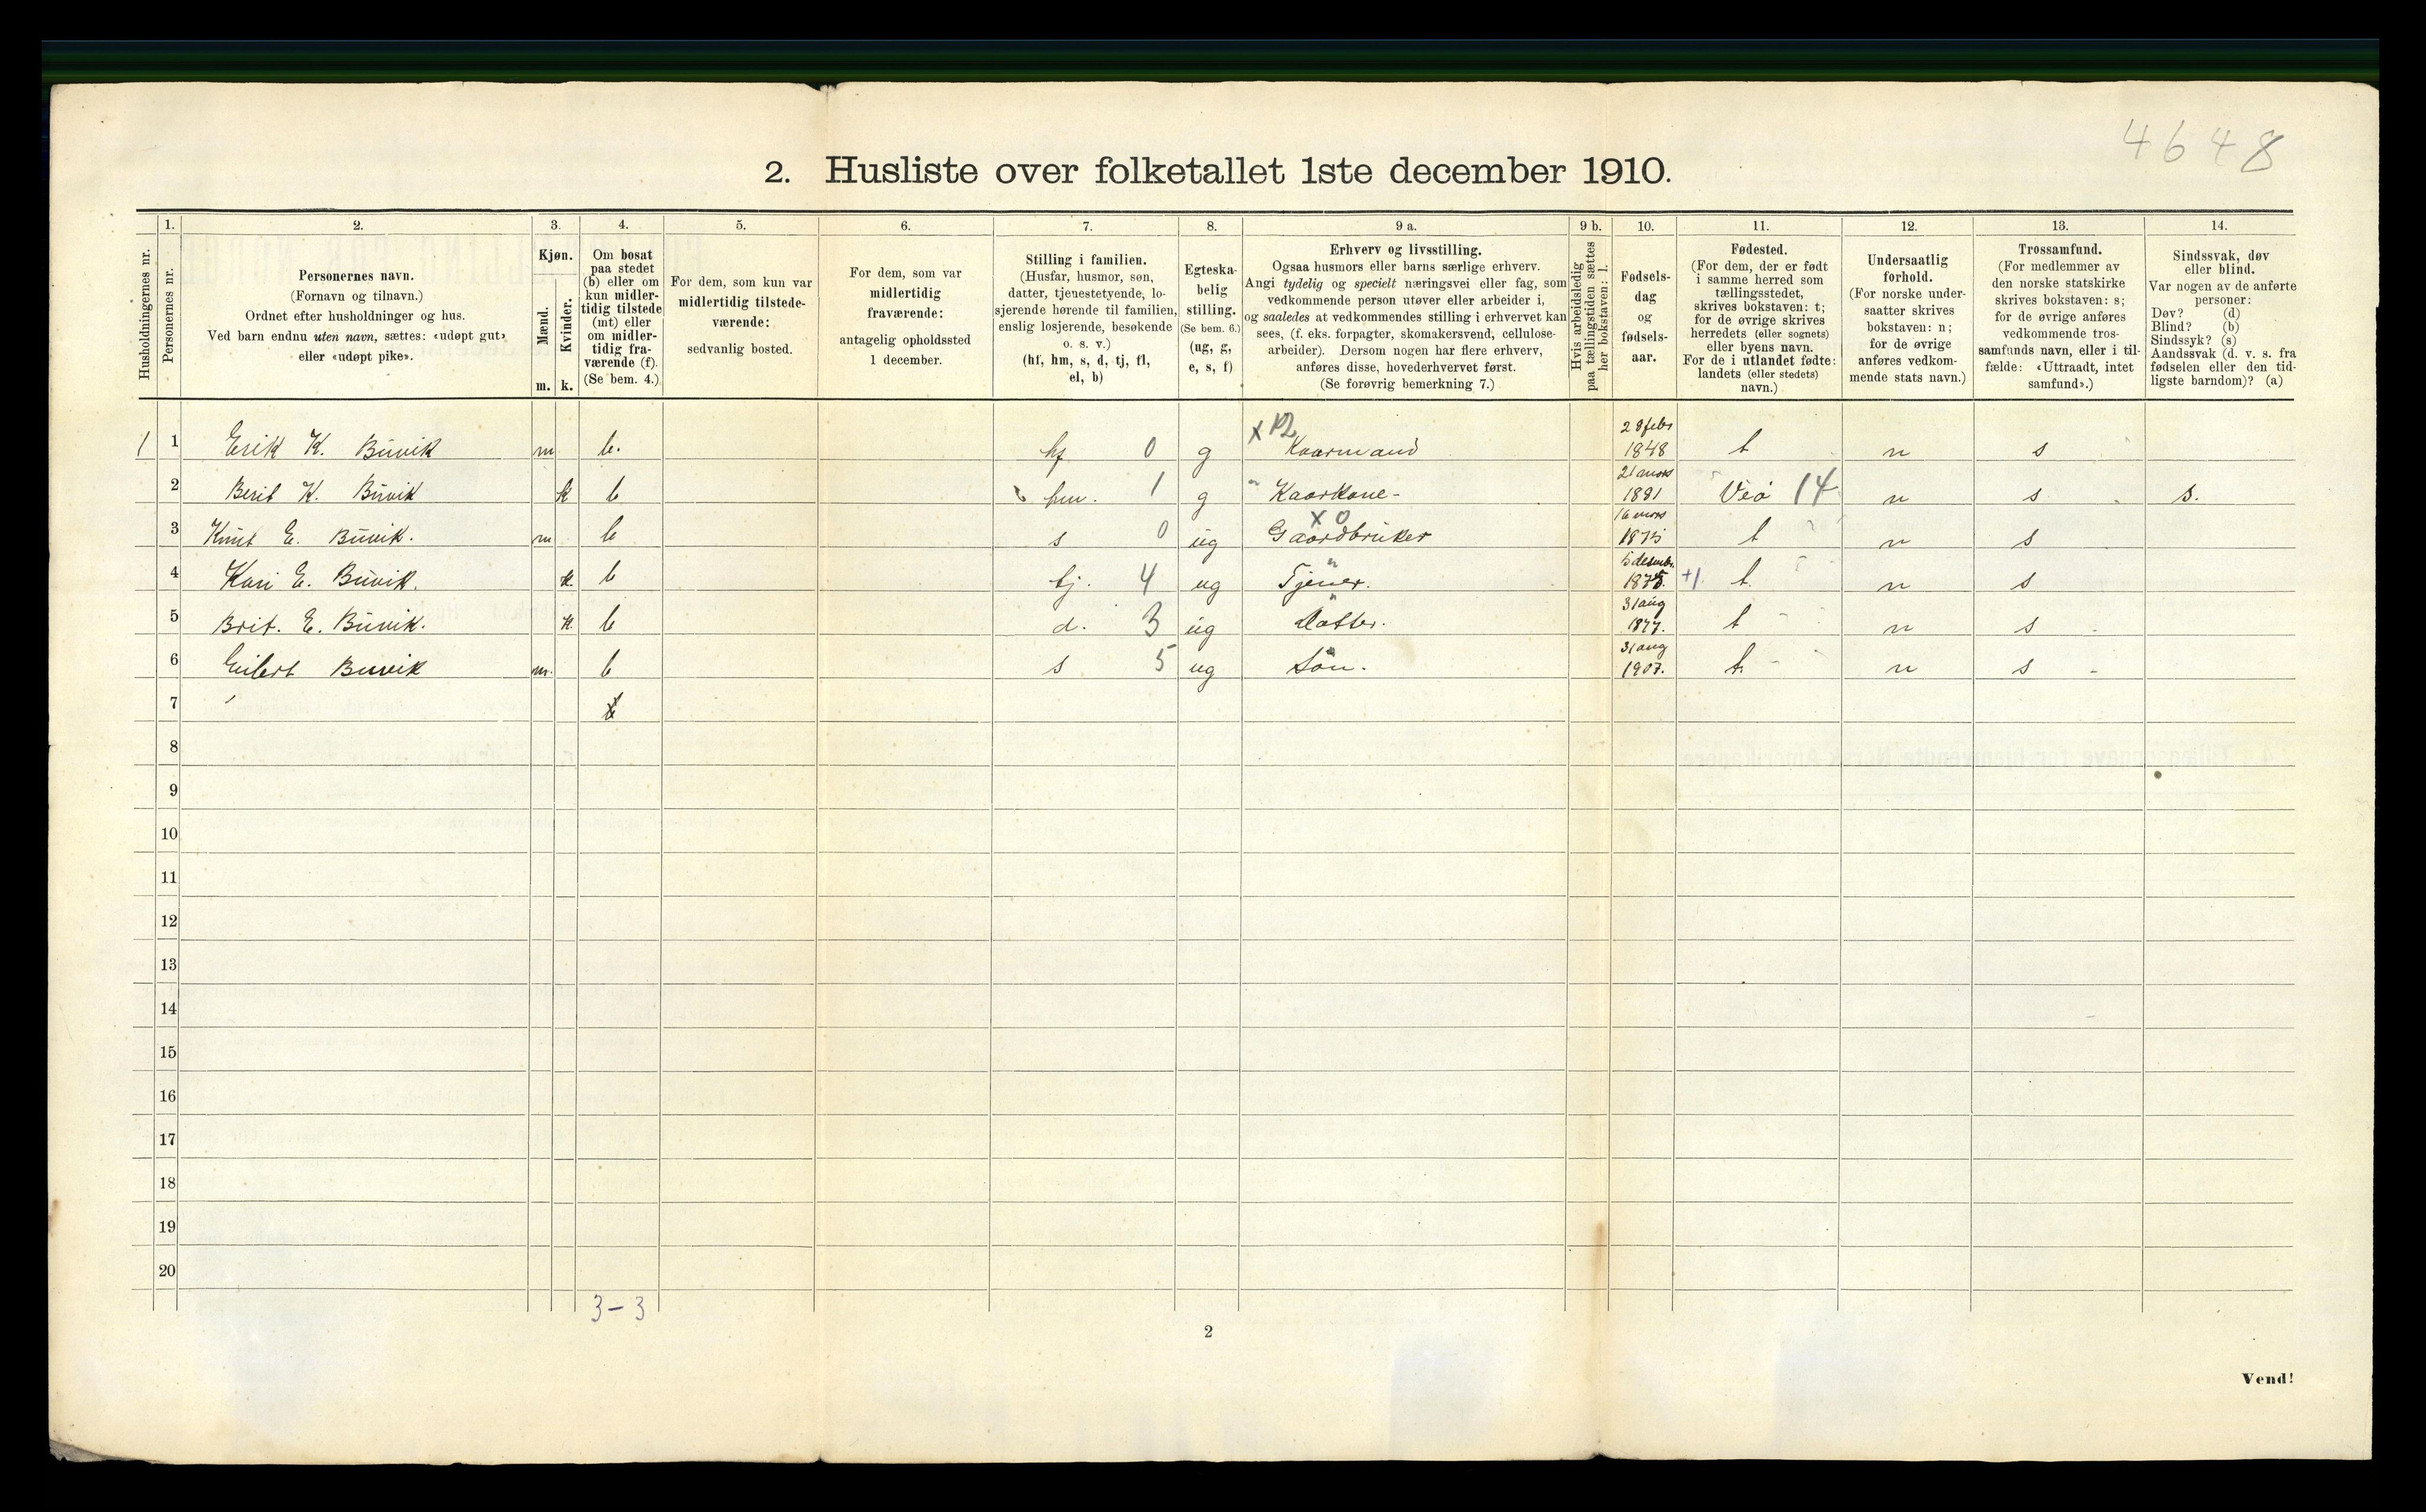 4648
2. Husliste over folketallet 1ste december 1910.
Husholdningernes nr.
1.
Personernes nr.
2.
Personernes navn.
(Fornavn og tilnavn.)
Ordnet efter husholdninger og hus.
Ved barn endnu uten navn, sættes: «udøpt gut»
eller «udøpt pike».
3.
Kjøn.
Mænd.
m.
Kvinder.
k.
4.
Om bosat
paa stedet
(b) eller om
kun midler-
tidig tilstede
(mt) eller
om midler-
tidig fra-
værende (f).
(Se bem. 4.)
5.
For dem, som kun var
midlertidig tilstede-
værende:
sedvanlig bosted.
6.
For dem, som var
midlertidig
fraværende:
antagelig opholdssted
1 december.
7.
Stilling i familien.
(Husfar, husmor, søn,
datter, tjenestetyende, lo-
sjerende hørende til familien,
enslig losjerende, besøkende
o. s. v.)
(hf, hm, s, d, tj, fl,
el, b)
8.
Egteska-
belig
stilling.
(Se bem. 6.)
(ug, g,
e, s, f)
9 a.
Erhverv og livsstilling.
Ogsaa husmors eller barns særlige erhverv.
Angi tydelig og specielt næringsvei eller fag, som
vedkommende person utøver eller arbeider i,
og saaledes at vedkommendes stilling i erhvervet kan
sees, (f. eks. forpagter, skomakersvend, cellulose-
arbeider). Dersom nogen har flere erhverv,
anføres disse, hovederhvervet først.
(Se forøvrig bemerkning 7.)
9 b.
Hvis arbeidsledig
paa tællingstiden sættes
her bokstaven: l.
10.
Fødsels-
dag
og
fødsels-
aar.
11.
Fødested.
(For dem, der er født
i samme herred som
tællingsstedet,
skrives bokstaven: t;
for de øvrige skrives
herredets (eller sognets)
eller byens navn.
For de i utlandet fødte:
landets (eller stedets)
navn.)
12.
Undersaatlig
forhold.
(For norske under-
saatter skrives
bokstaven: n;
for de øvrige
anføres vedkom-
mende stats navn.)
13.
Trossamfund.
(For medlemmer av
den norske statskirke
skrives bokstaven: s;
for de øvrige anføres
vedkommende tros-
samfunds navn, eller i til-
fælde: «Uttraadt, intet
samfund».)
14.
Sindssvak, døv
eller blind.
Var nogen av de anførte
personer:
Døv? (d)
Blind? (b)
Sindssyk? (s)
Aandssvak (d. v. s. fra
fødselen eller den tid-
ligste barndom)? (a)
1 1 Erik K. Buvik m b. hf 0 g x Kaarmand 28 febr 1848 t n s
2 Berit K. Buvik k b hm. 1 g " Kaarkone - 1881 Veø 14 n s s.
3 Knut E. Buvik. m b s 0 ug x 0 Gaardbruker 16 mars 1875 t n s
4 Kari E. Buvik. k b tj. 4 ug " Tjener. +1 t. n s
5 Brit. E. Buvik. k b d. 3 ug " Datter. 31 aug 1877. t n s
6 Eilert Buvik m. b s 5 ug " Søn. 31 aug 1907. t n s
7
8
9
10
11
12
13
14
15
16
17
18
19
20
3-3
2
Vend!